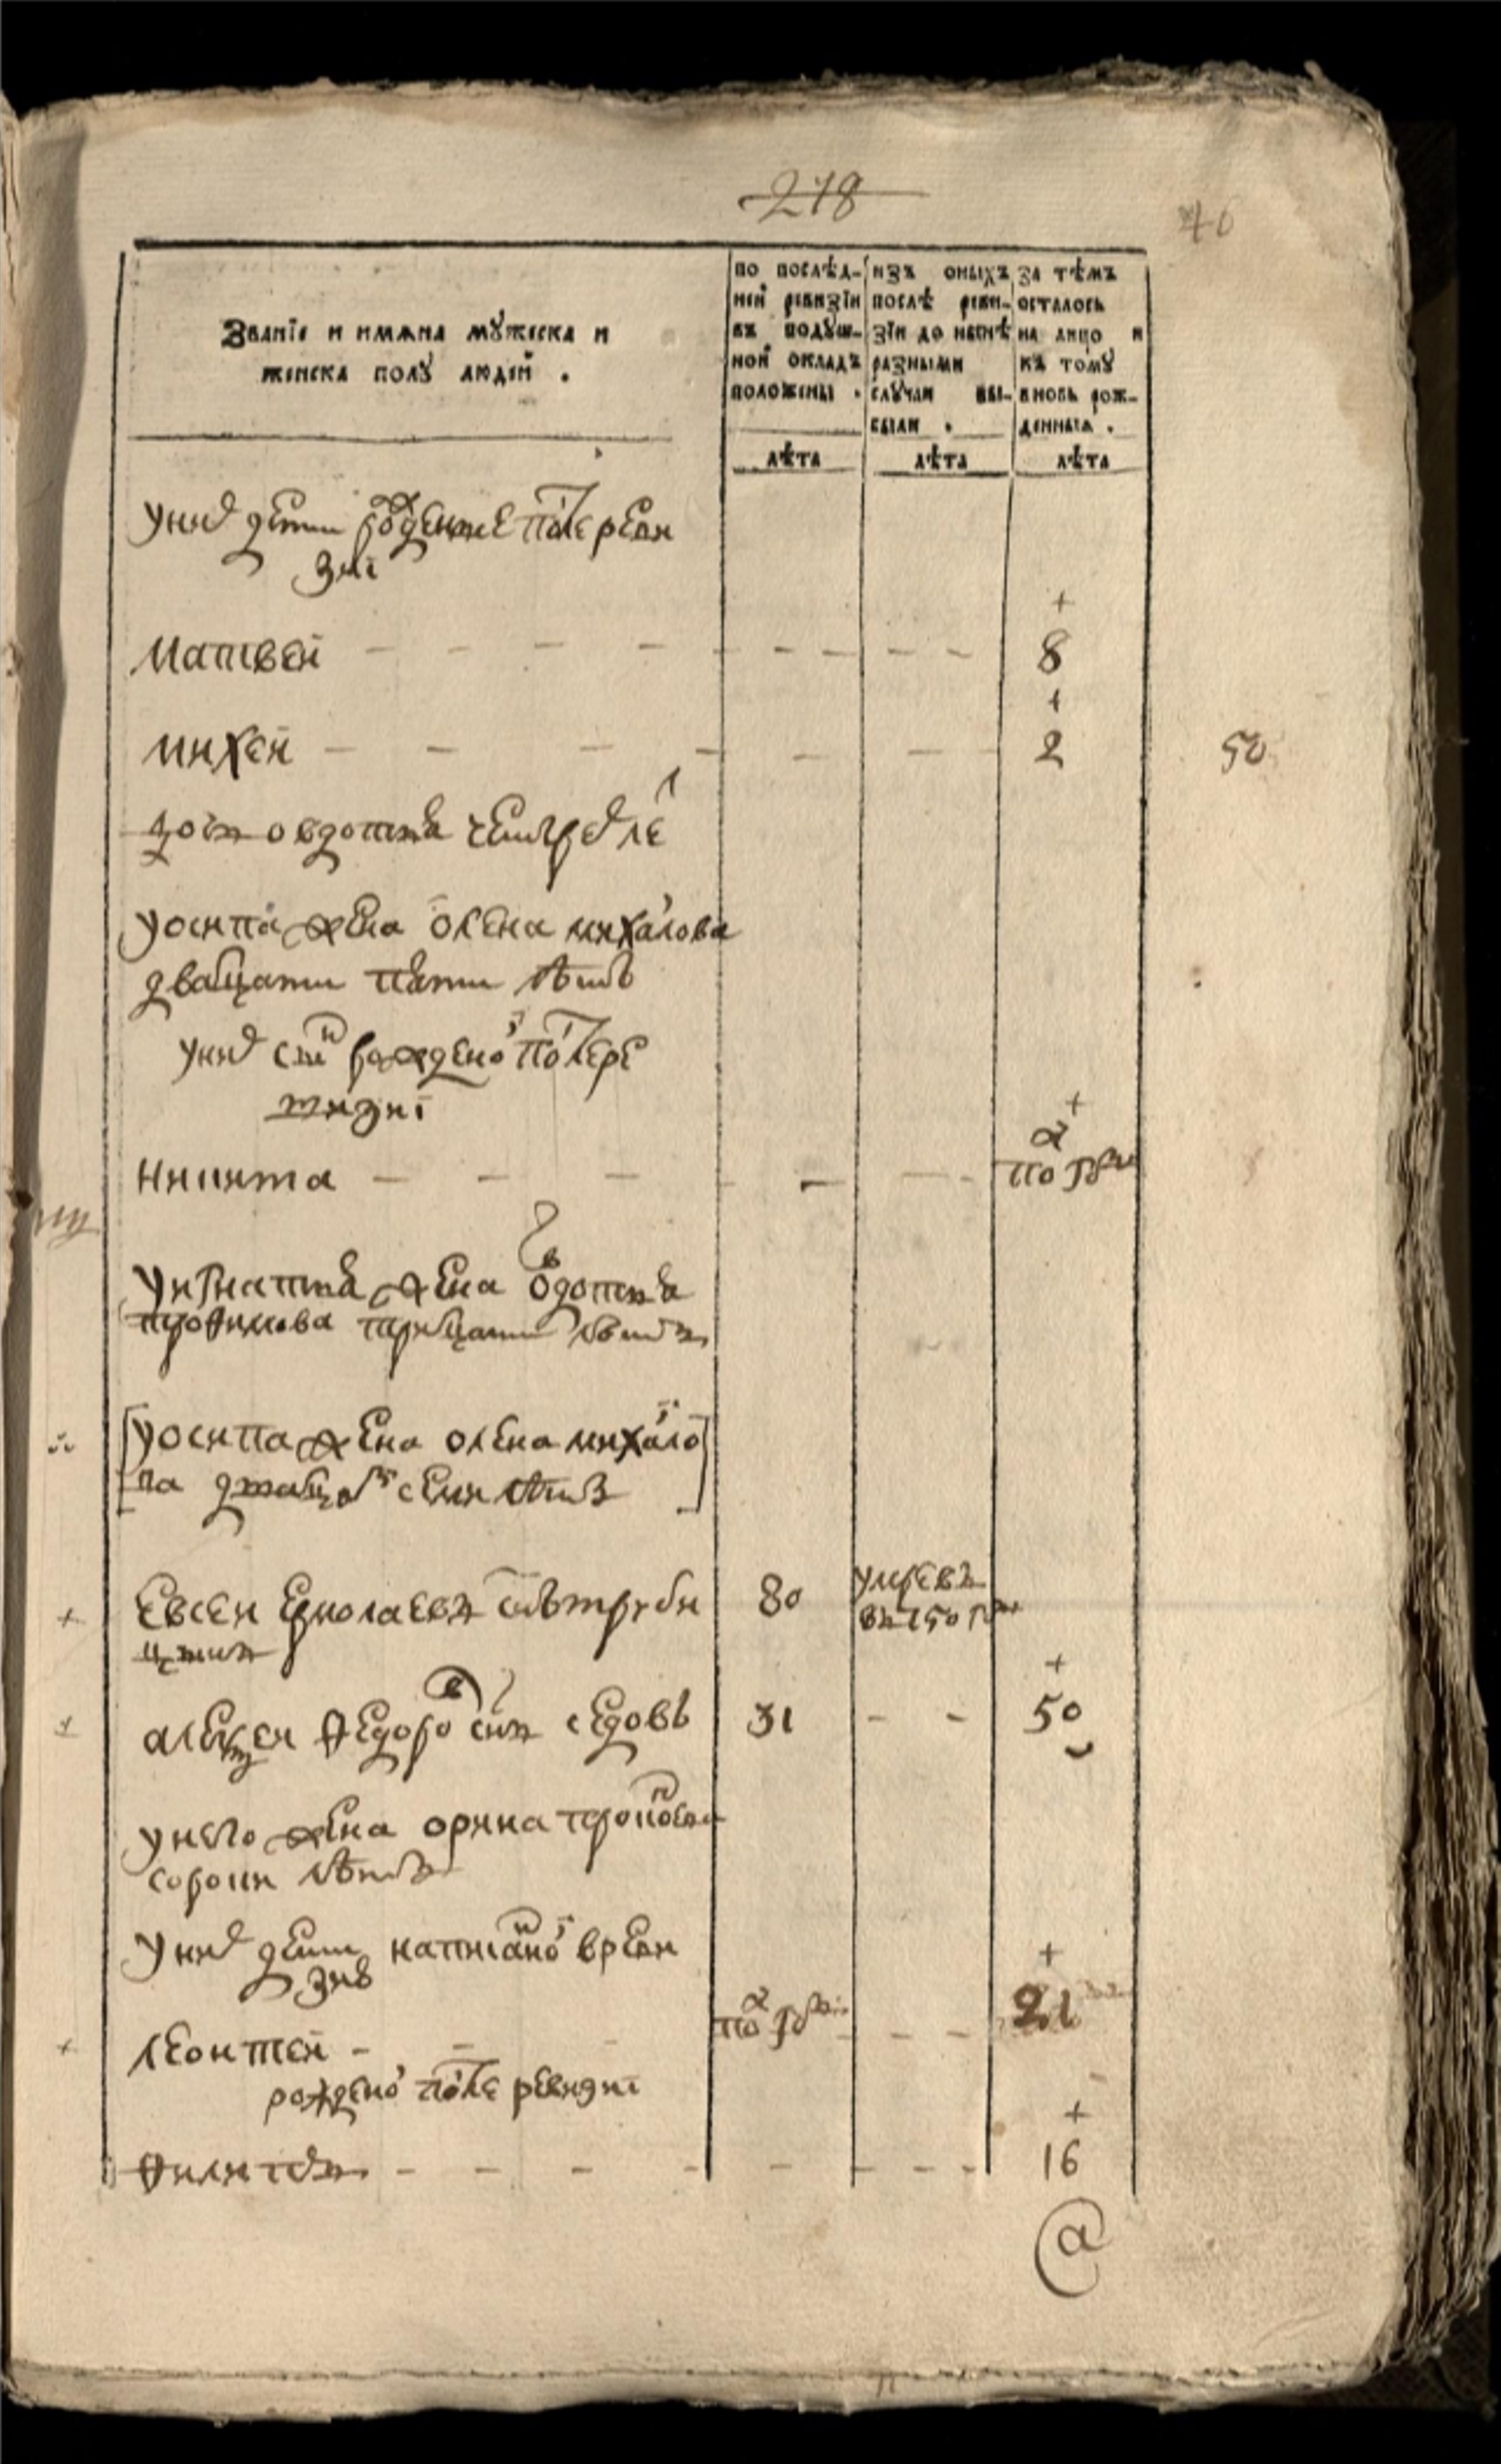 218
Званїе и имѧна мꙋжеска и
женска полꙋ людей .
по послѣд-
ней ревизїи
въ подꙋш-
ной окладъ
положены .
изъ оныхъ
послѣ реви-
зїи до нынѣ
разными
слꙋчаи вы-
были .
за тѣмъ
осталось
на лицо и
къ томꙋ
вновь рож-
денныхъ .
лѣта лѣта лѣта
уних дети рожденные после реви
зиі
+
матвей - - - - - - - - - 8
+
михей - - - - - - 2
50
дочь овдотья четырех лѣ
уосипа жена олена михайлова
двацати пяти летъ
уних сын рожденой после ре
визиі
+
никита - - - - - - по году
уигнатья жена овдотья
трофимова трицати летъ
[уосипа жена олена михайло
ва двацать семи летъ]
+ евсей ермолаевъ 80 умре въ
въ 750 году
+
+ алексей федоров сынъ седовъ 31 - - 50
унего жена орина прокофьева
сороки летъ
уних дети написаной вреви
зиѣ
+
+ леонтей - - по году - - 21
рожденой после ревизиі
+
филипъ - - - - - - - - 16